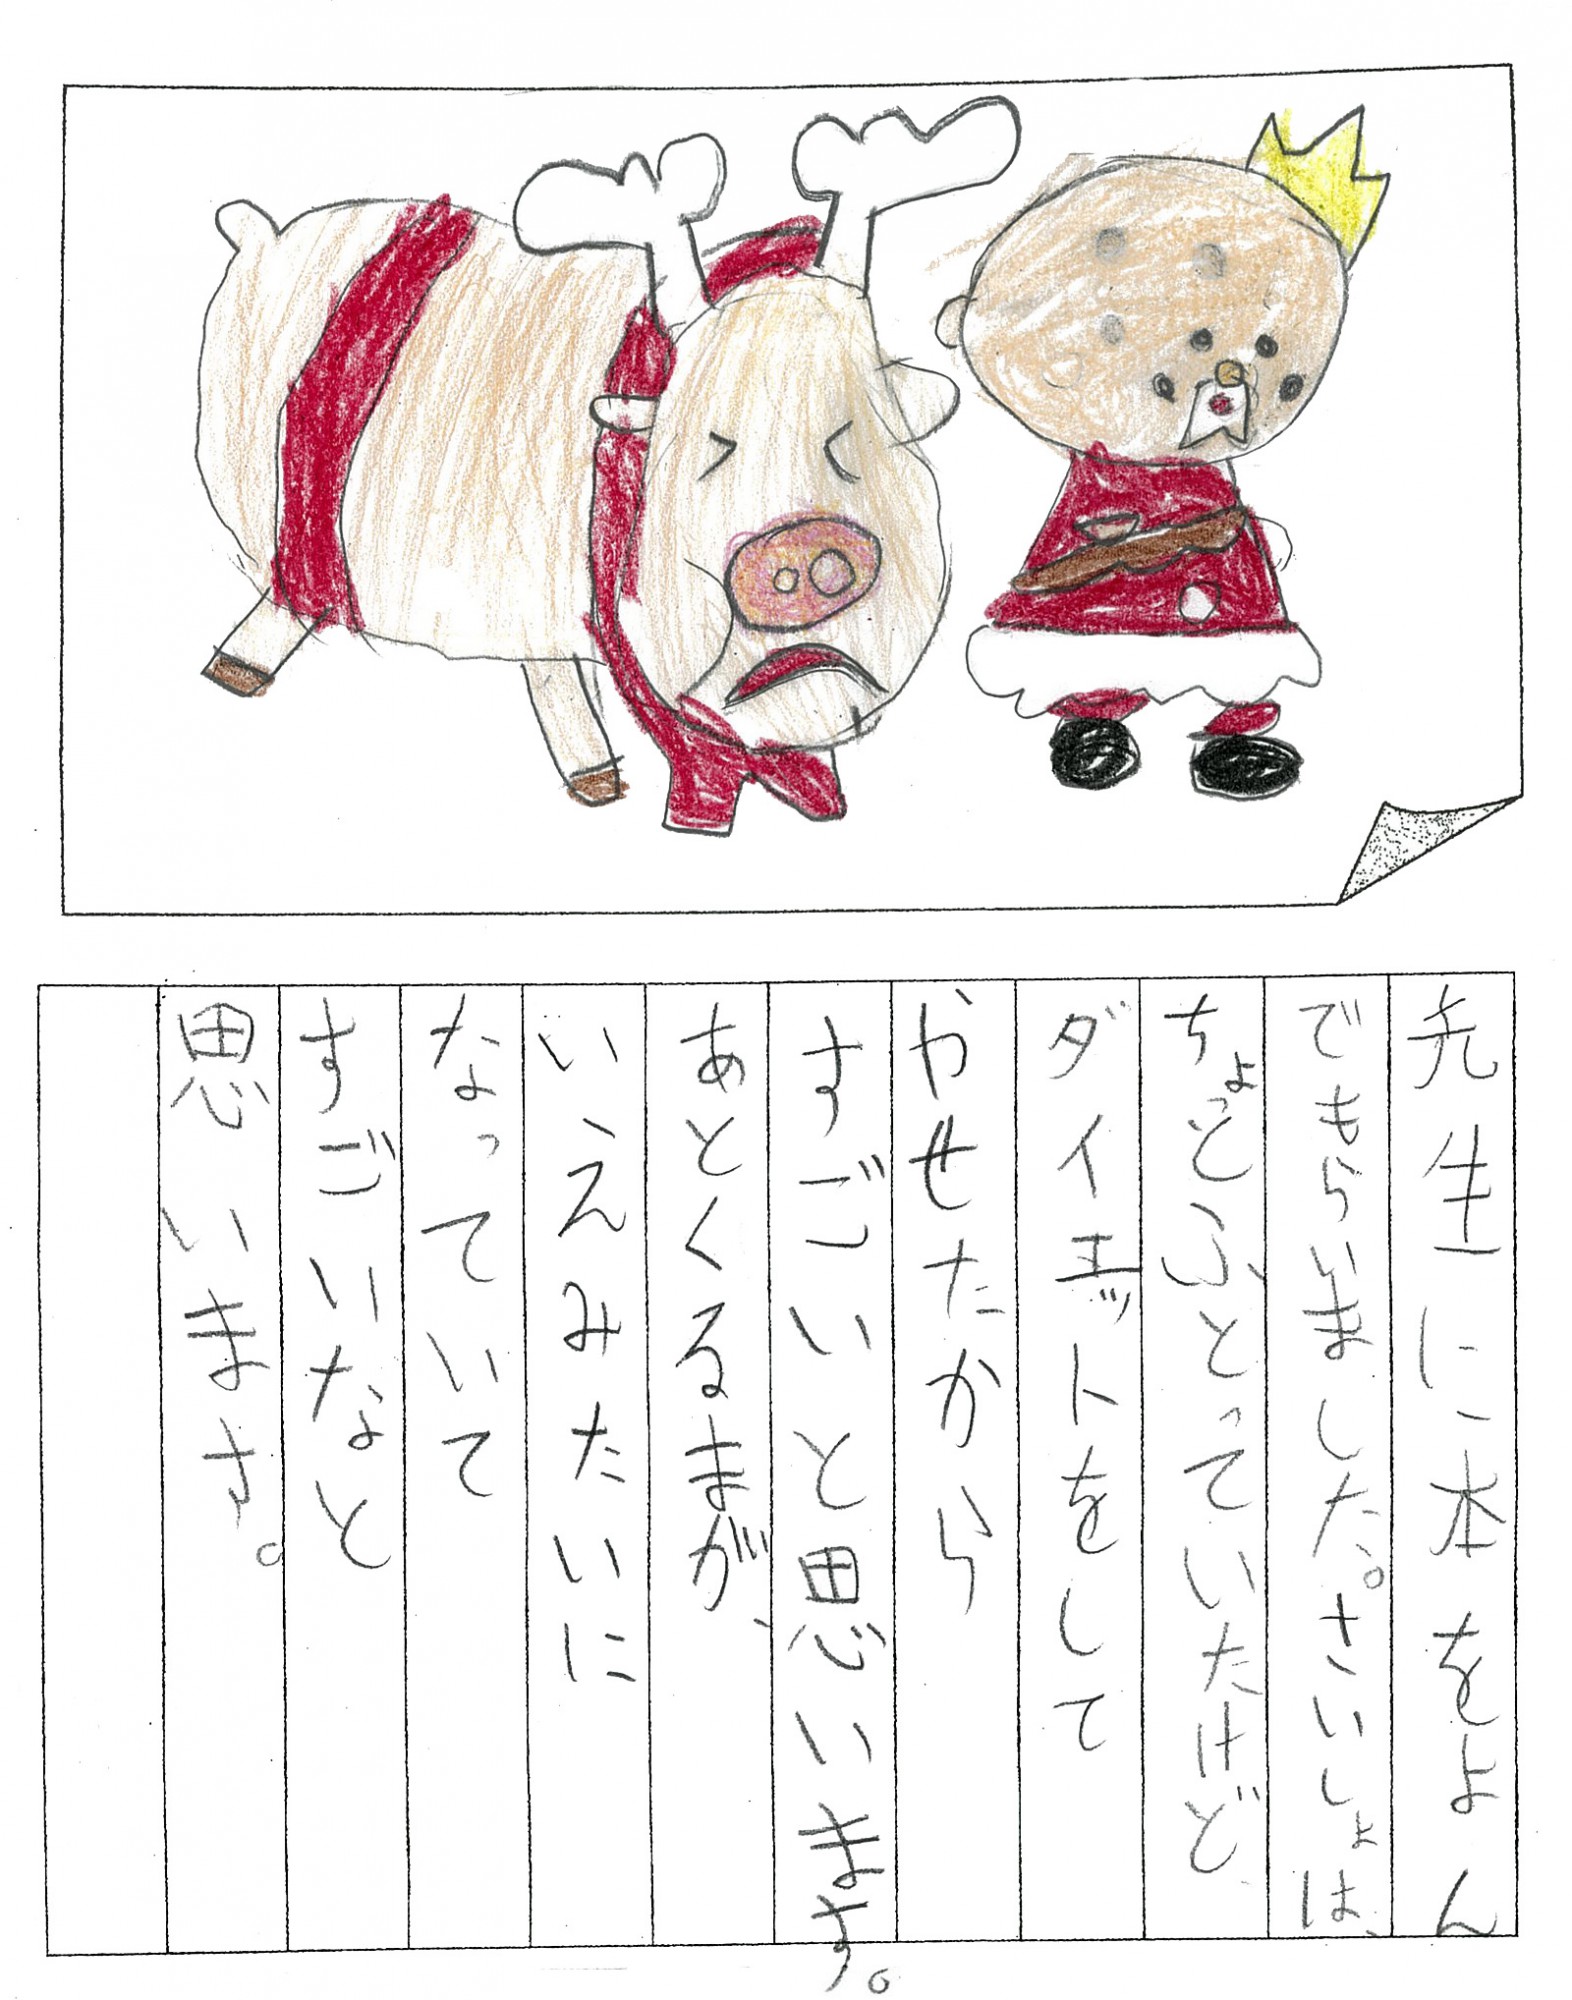 先生に本をよん
でもらいました。さいしょは、
ちょっとふとっていたけど
ダイエットをして
やせたから
すごいと思います。
あとくるまが、
いえみたいに
なっていて
すごいなと
思います。